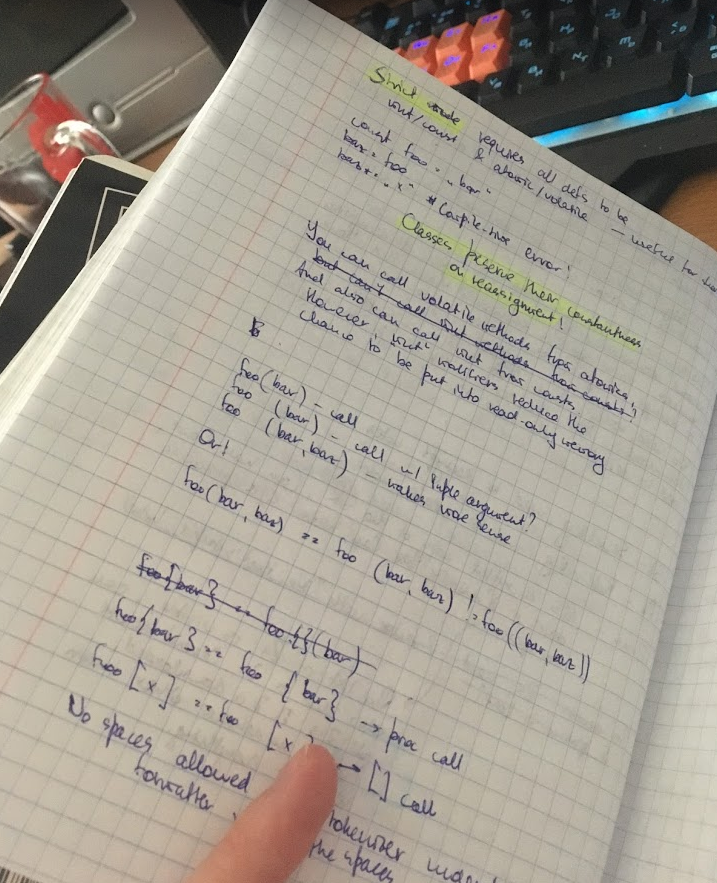 Strict mode requires all defs to be
uint/const & atomic/volatile – useful for
const foo = „bar"
bar = foo
bar += „x" # Compile-time error!
Classes preserve their constantness
on reassignment!
You can call volatile methods from atomics,
but can't call uint methods from consts!
And also can call uint from consts,
However, uint modifiers reduce the
chance to be put into read-only memory
B
foo(bar) – call
foo (bar) – call w/ tuple argument?
foo (bar, baz) – makes more sense
Or!
foo(bar, baz) == foo (bar, baz) != foo((bar, baz))
foo{bar} == foo{}(bar)
foo{bar} == foo {bar} → proc call
foo[x] == foo [x] → [] call
No spaces allowed tokenizer
formatter the spaces